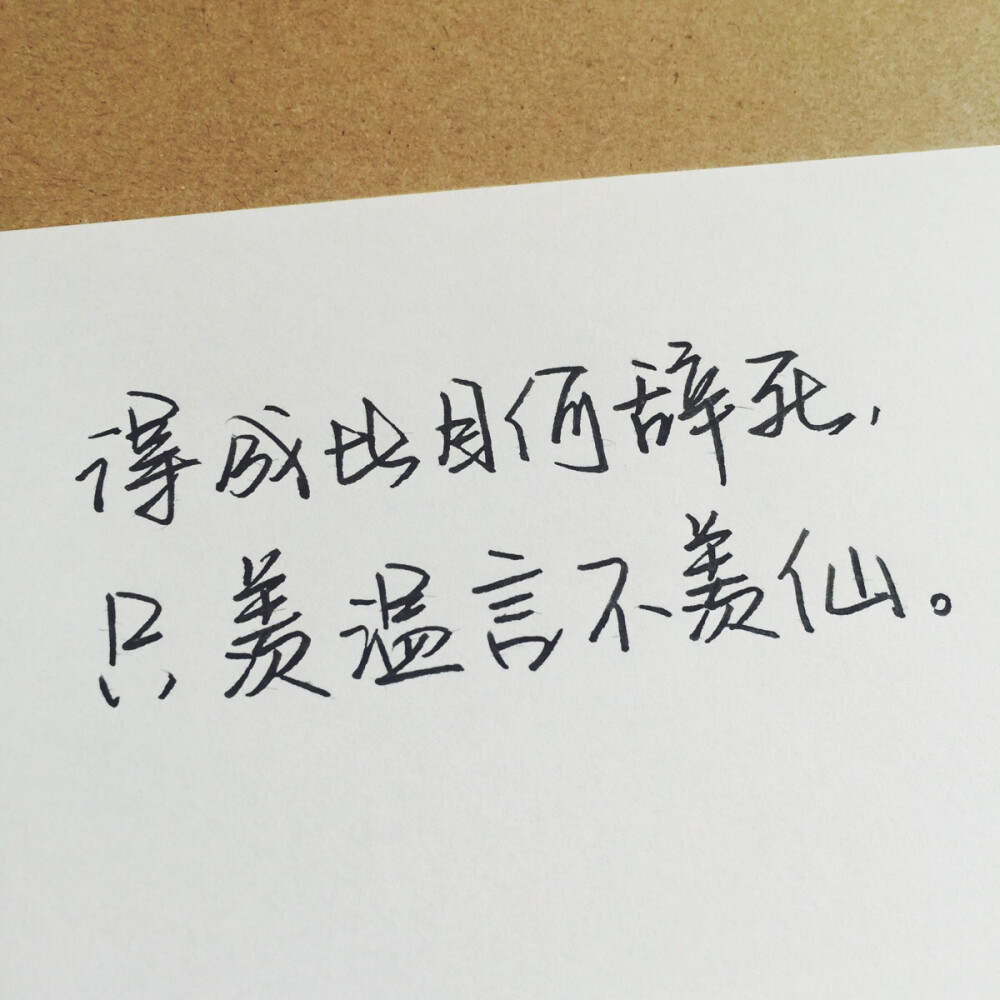 得成比目何辞死，
只羡温言不羡仙。